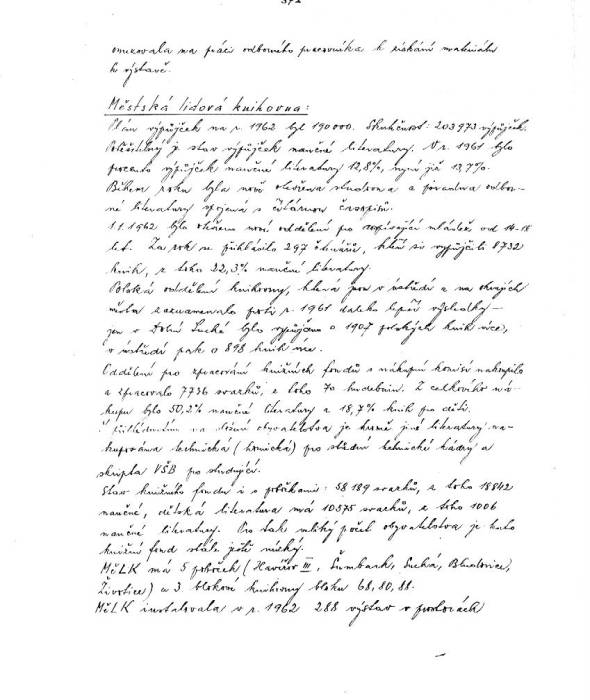 371
orvala na práci odborného pracovníka k získání materiálu
k výstavě.
Městská lidová knihovna:
Plán výpůjček na r. 1962 byl 190000. Skutečnost: 203973 výpůjček.
Potěšitelný je stav výpůjček naučné literatury. V r. 1961 bylo
procento výpůjček naučné literatury 12,8%, nyní již 13,7%.
Během roku byla nově otevřena studovna a půjčovna odbor-
né literatury spojená s čítárnou časopisů.
1.1.1962 bylo otevřeno nové oddělení pro dospívající mládež od 14-18
let. Za rok se přihlásilo 297 čtenářů, kteří si vypůjčili 8732
knih, z toho 22,3% naučné literatury.
Polská oddělení knihovny, která jsou v ústředí a na okrajích
města zaznamenala proti r. 1961 daleko lepší výsledky -
jen v Dolní Suché bylo vypůjčeno o 1907 polských knih více,
v ústředí pak o 898 knih více.
Oddělení pro zpracování knižních fondů s nákupní komisí nakoupilo
a zpracovalo 7736 svazků, z toho 70 hudebnin. Z celkového ná-
kupu bylo 50,2% naučné literatury a 18,7% knih pro děti.
S přihlédnutím na složení obyvatelstva je kromě jiné literatury na-
kupována technická (hornická) pro střední technické kádry a
skripta VŠB pro studující.
Stav knižního fondu i s pobočkami: 58 189 svazků, z toho 18842
naučné, dětská literatura má 10575 svazků, z toho 1006
naučné literatury. Pro tak veliký počet obyvatelstva je tento
knižní fond stále ještě nízký.
MěLK má 5 poboček (Havířov III, Šumbark, Suchá, Bludovice,
Životice) a 3 blokové knihovny bloku 68, 80, 88.
MěLK instalovala v r. 1962 288 výstav v prostorách